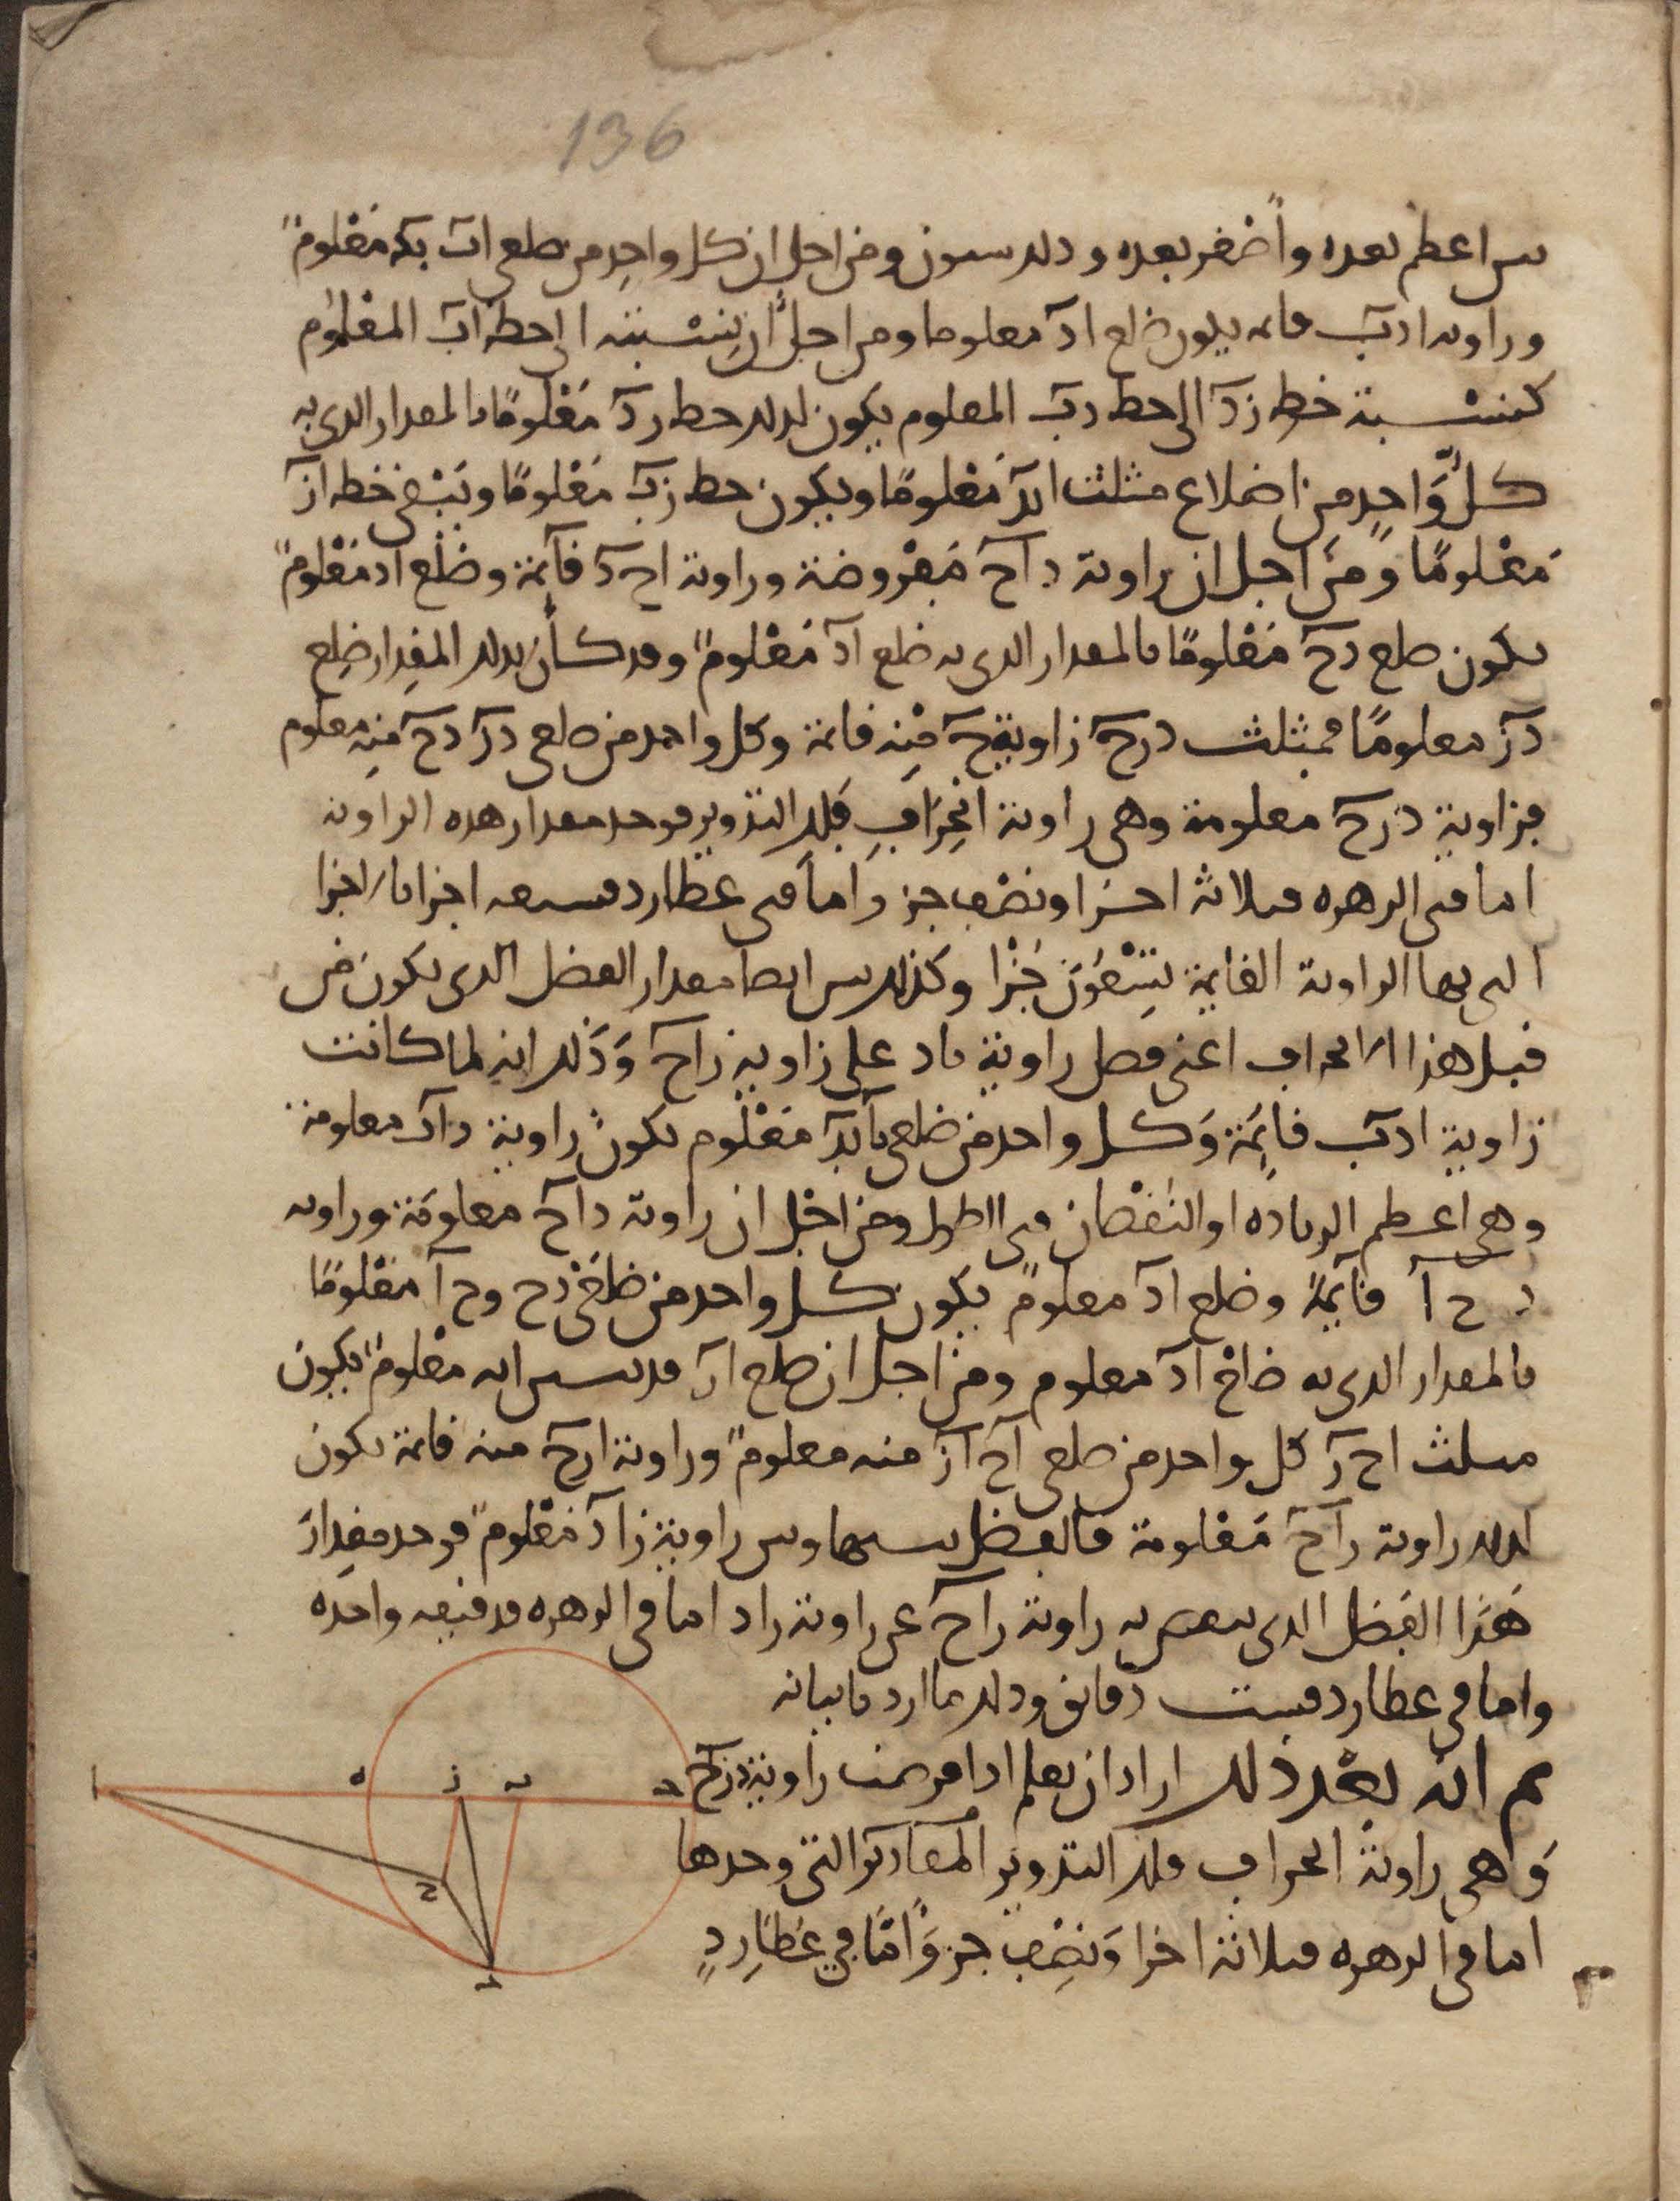 136
بين اعظم بعده واصغر بعده وذلك سنون ومن اجل ان كل واحد من ضلعى اب بد معلوم
وزاوية ادب قائمه يكون ضلع اد معلوما ومن اجل ان نسبته الى خط اب المعلوم
كنسبة خط زد الى خط دب المعلوم يكون لذلك خط زد معلوما بالمقدار الذى به
كل واحد من اضلاع مثلث ابد معلوما ويكون خط زب معلوما ويبقى خط از
معلوما ومن اجل ان زاوية داح مفروضة وزاوية احد قائمة وضلع اد معلوم
يكون ضلع دح معلوما بالمقدار الذى به ضلع اد معلوم وقد كان بذلك المقدار ضلع
دز معلوما فمثلث درح زاوية ح منه قائمة وكل واحد من ضلعى دز دح منه معلوم
فزاوية دزح معلومة وهى زاوية انحراف فلك التدوير فوجد مقدار هذه الزاوية
اما فى الزهره فثلاثة اجزا ونصف جز واما فى عطارد فسبعه اجزا بالاجزا
التى بها الزاوية القايمة تسعون جزا وكذلك يبين ايضا مقدار الفضل الذى يكون من
قبل هذا الانحراف اعنى فضل زاوية باد على زاوية زاح وذلك انه لما كانت
زاوية ادب قايمة وكل واحد من ضلعى با بد معلوم يكون زاوية داب معلومة
وهى اعظم الزياده او النقصان فى الطول ومن اجل ان زاوية داح معلومة وزاوية
د ح ا قايمة وضلع اد معلوم يكون كل واحد من ضلعى دح وح ا معلوما
بالمقدار الذى به ضلع اد معلوم ومن اجل ان ضلع از قد تبين انه معلوم يكون
مثلث اح ز كل واحد من ضلعى اح از منه معلوم وزاوية ازح منه قائمة يكون
لذلك زاوية زاح معلومة فالفضل بينها وبين زاوية زاد معلوم فوجد مقدار
هذا الفضل الذى ينقص به زاوية زاح عن زاوية زاد اما فى الزهره فدقيقه واحده
واما فى عطارد فست دقائق وذلك ما اردنا بيانه
ثم انه بعد ذلك اراد ان يعلم اذا فرضت زاوية دزح
وهى زاوية انحراف فلك التدوير المقادير التى وجدها
اما فى الزهره فثلاثة اجزا ونصف جز واما فى عطارد
ا ه ز ب ح
ح
د